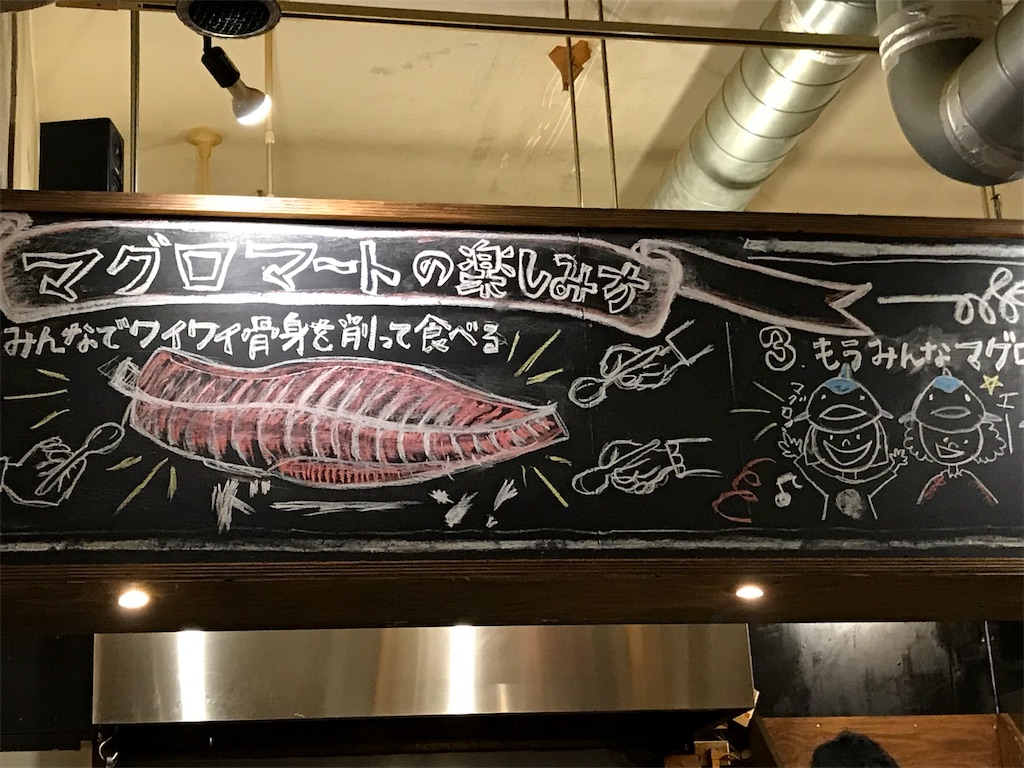 マグロマートの楽しみ方
みんなでワイワイ骨身を削って食べる
3. もうみんなマグロ
マグロ